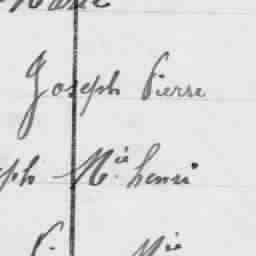 Marie
Joseph Pierre
ph Mie henri
Mie